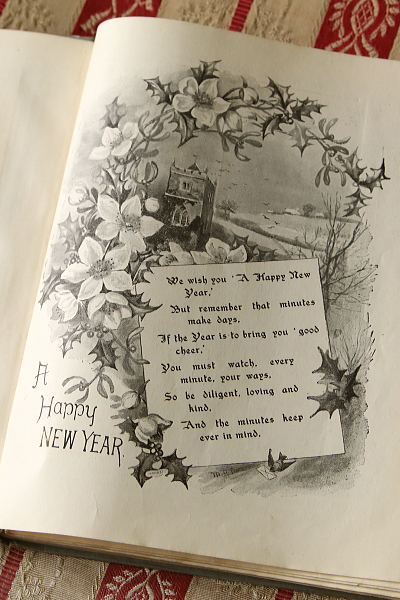 We wish you 'A Happy New
Year,'
But remember that minutes
make days,
If the Year is to bring you 'good
cheer,'
You must watch, every
minute, your ways,
So be diligent, loving and
kind,
And the minutes keep
ever in mind.
A
Happy
NEW YEAR.